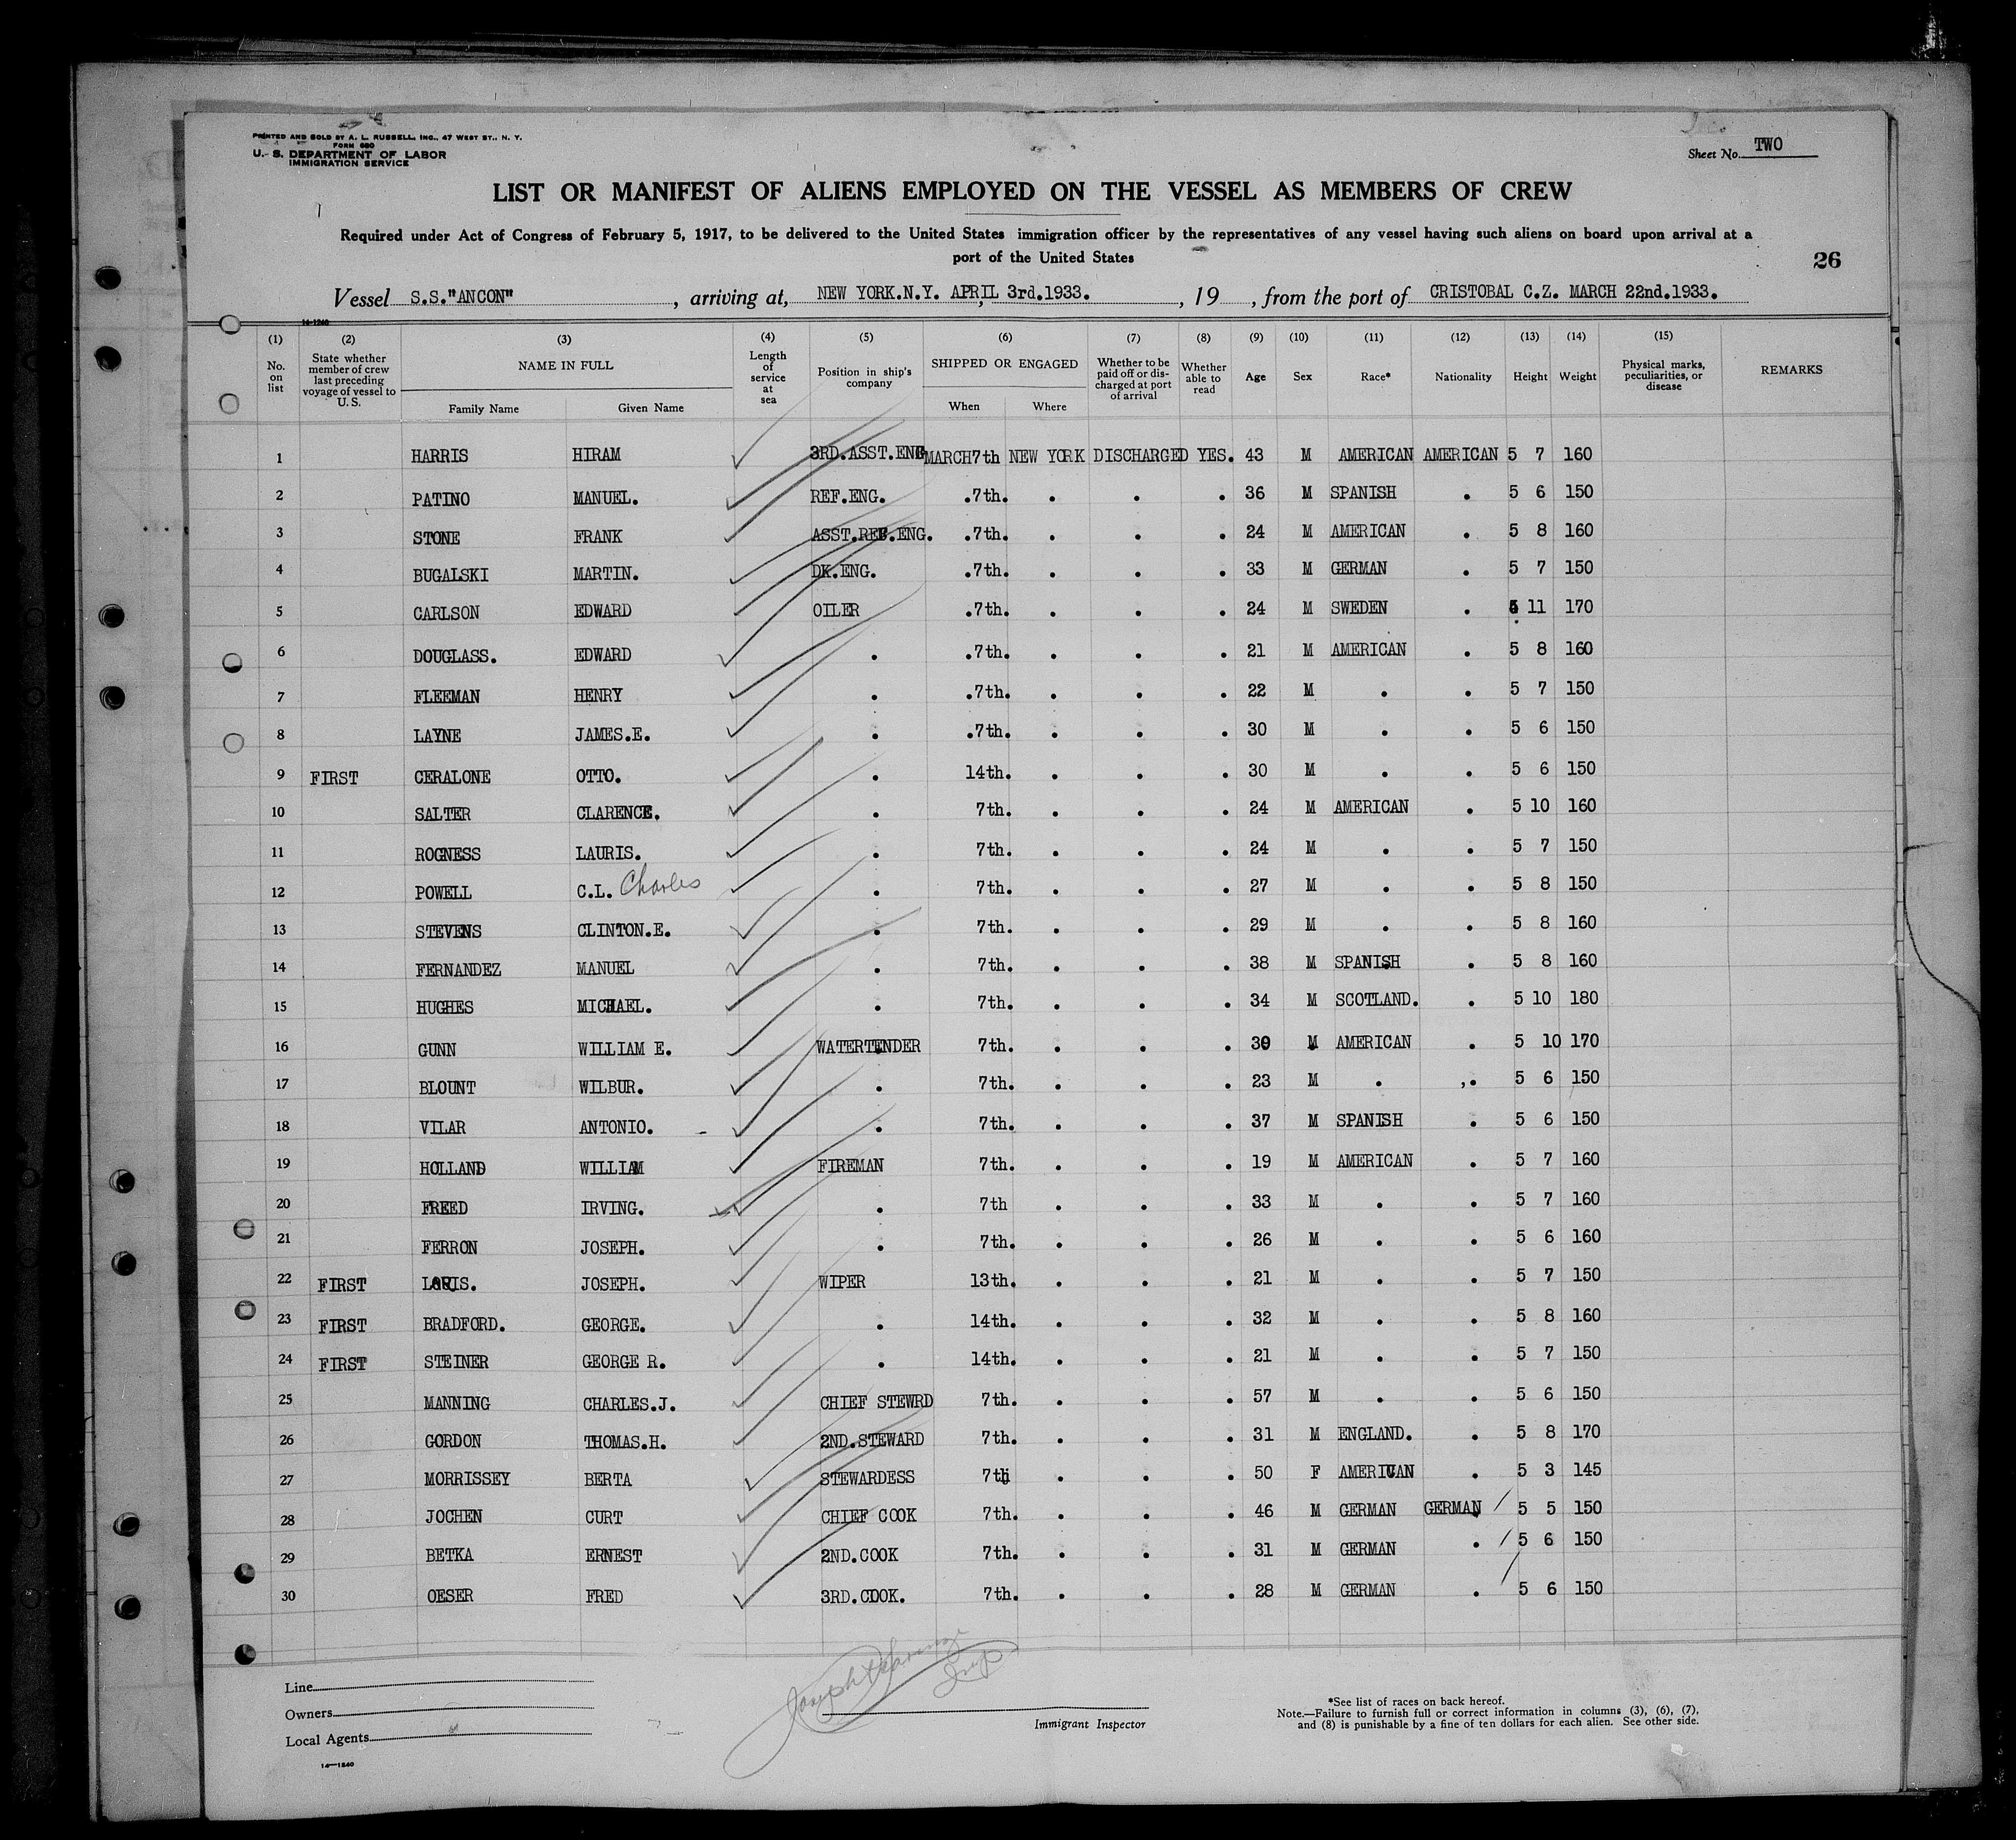 PRINTED AND SOLD BY A. L. RUSSELL, INC., 47 WEST ST., N. Y.
FORM 680
U. S. DEPARTMENT OF LABOR
IMMIGRATION SERVICE
Sheet No. TWO
LIST OR MANIFEST OF ALIENS EMPLOYED ON THE VESSEL AS MEMBERS OF CREW
Required under Act of Congress of February 5, 1917, to be delivered to the United States immigration officer by the representatives of any vessel having such aliens on board upon arrival at a
port of the United States
26
Vessel S.S."ANCON", arriving at, NEW YORK.N.Y. APRIL 3rd.1933., 19 , from the port of CRISTOBAL C.Z. MARCH 22nd.1933.
14-1240
(1) (2) (3) (4) (5) (6) (7) (8) (9) (10) (11) (12) (13) (14) (15)
No. on list State whether member of crew last preceding voyage of vessel to U. S. NAME IN FULL Length of service at sea Position in ship's company SHIPPED OR ENGAGED Whether to be paid off or discharged at port of arrival Whether able to read Age Sex Race* Nationality Height Weight Physical marks, peculiarities, or disease REMARKS
Family Name Given Name When Where
1 HARRIS HIRAM 3RD.ASST.ENG MARCH7th NEW YORK DISCHARGED YES. 43 M AMERICAN AMERICAN 5 7 160
2 PATINO MANUEL. REF.ENG. .7th. . . . 36 M SPANISH . 5 6 150
3 STONE FRANK ASST.REF.ENG. .7th. . . . 24 M AMERICAN . 5 8 160
4 BUGALSKI MARTIN. DK.ENG. .7th. . . . 33 M GERMAN . 5 7 150
5 CARLSON EDWARD OILER .7th. . . . 24 M SWEDEN . 5 11 170
6 DOUGLASS. EDWARD . .7th. . . . 21 M AMERICAN . 5 8 160
7 FLEEMAN HENRY . .7th. . . . 22 M . . 5 7 150
8 LAYNE JAMES.E. . .7th. . . . 30 M . . 5 6 150
9 FIRST CERALONE OTTO. . 14th. . . . 30 M . . 5 6 150
10 SALTER CLARENCE. . 7th. . . . 24 M AMERICAN . 5 10 160
11 ROGNESS LAURIS. . 7th. . . . 24 M . . 5 7 150
12 POWELL C.L. Charles . 7th. . . . 27 M . . 5 8 150
13 STEVENS CLINTON.E. . 7th. . . . 29 M . . 5 8 160
14 FERNANDEZ MANUEL . 7th. . . . 38 M SPANISH . 5 8 160
15 HUGHES MICHAEL. . 7th. . . . 34 M SCOTLAND. . 5 10 180
16 GUNN WILLIAM E. WATERTENDER 7th. . . . 30 M AMERICAN . 5 10 170
17 BLOUNT WILBUR. . 7th. . . . 23 M . . 5 6 150
18 VILAR ANTONIO. . 7th. . . . 37 M SPANISH . 5 6 150
19 HOLLAND WILLIAM FIREMAN 7th. . . . 19 M AMERICAN . 5 7 160
20 FREED IRVING. . 7th . . . 33 M . . 5 7 160
21 FERRON JOSEPH. . 7th. . . . 26 M . . 5 6 160
22 FIRST JOSEPH. WIPER 13th. . . . 21 M . . 5 7 150
23 FIRST BRADFORD. GEORGE. . 14th. . . . 32 M . . 5 8 160
24 FIRST STEINER GEORGE R. . 14th. . . . 21 M . . 5 7 150
25 MANNING CHARLES.J. CHIEF STEWRD 7th. . . . 57 M . . 5 6 150
26 GORDON THOMAS.H. 2ND.STEWARD 7th. . . . 31 M ENGLAND. . 5 8 170
27 MORRISSEY BERTA STEWARDESS 7th . . . 50 F AMERICAN . 5 3 145
28 JOCHEN CURT CHIEF COOK 7th. . . . 46 M GERMAN GERMAN 5 5 150
29 BETKA ERNEST 2ND.COOK 7th. . . . 31 M GERMAN . 5 6 150
30 OESER FRED 3RD.COOK. 7th. . . . 28 M GERMAN . 5 6 150
Line
Owners
Local Agents
14—1240
Joseph Insp
Immigrant Inspector
*See list of races on back hereof.
Note.—Failure to furnish full or correct information in columns (3), (6), (7),
and (8) is punishable by a fine of ten dollars for each alien. See other side.